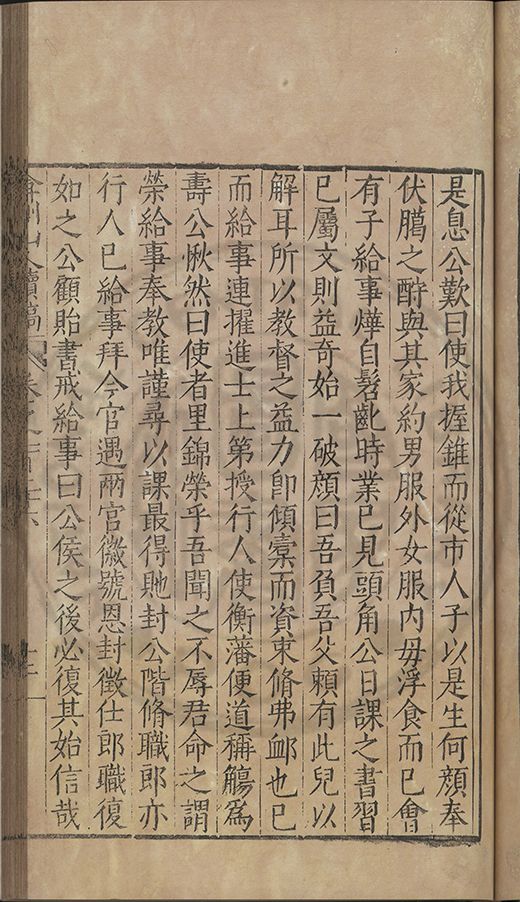 是息公歎曰使我握錐而從市人子以是生何顔奉
伏臈之酧與其家約男服外女服内毋浮食而已會
有子給事燁自髫齔時業已見頭角公日課之書習
已屬文則益奇始一破顔曰吾負吾父頼有此兒以
解耳所以教督之益力卽傾槖而資束脩弗䘏也已
而給事連擢進士上第授行人使衡藩便道稱觴爲
壽公愀然曰使者里錦榮乎吾聞之不辱君命之謂
榮給事奉教唯謹尋以課最得貤封公階脩職郎亦
行人已給事拜今官遇兩宫徽號恩封徵仕郎職復
如之公顧貽書戒給事曰公侯之後必復其始信哉
弇州山人續稿 卷之一百二十六